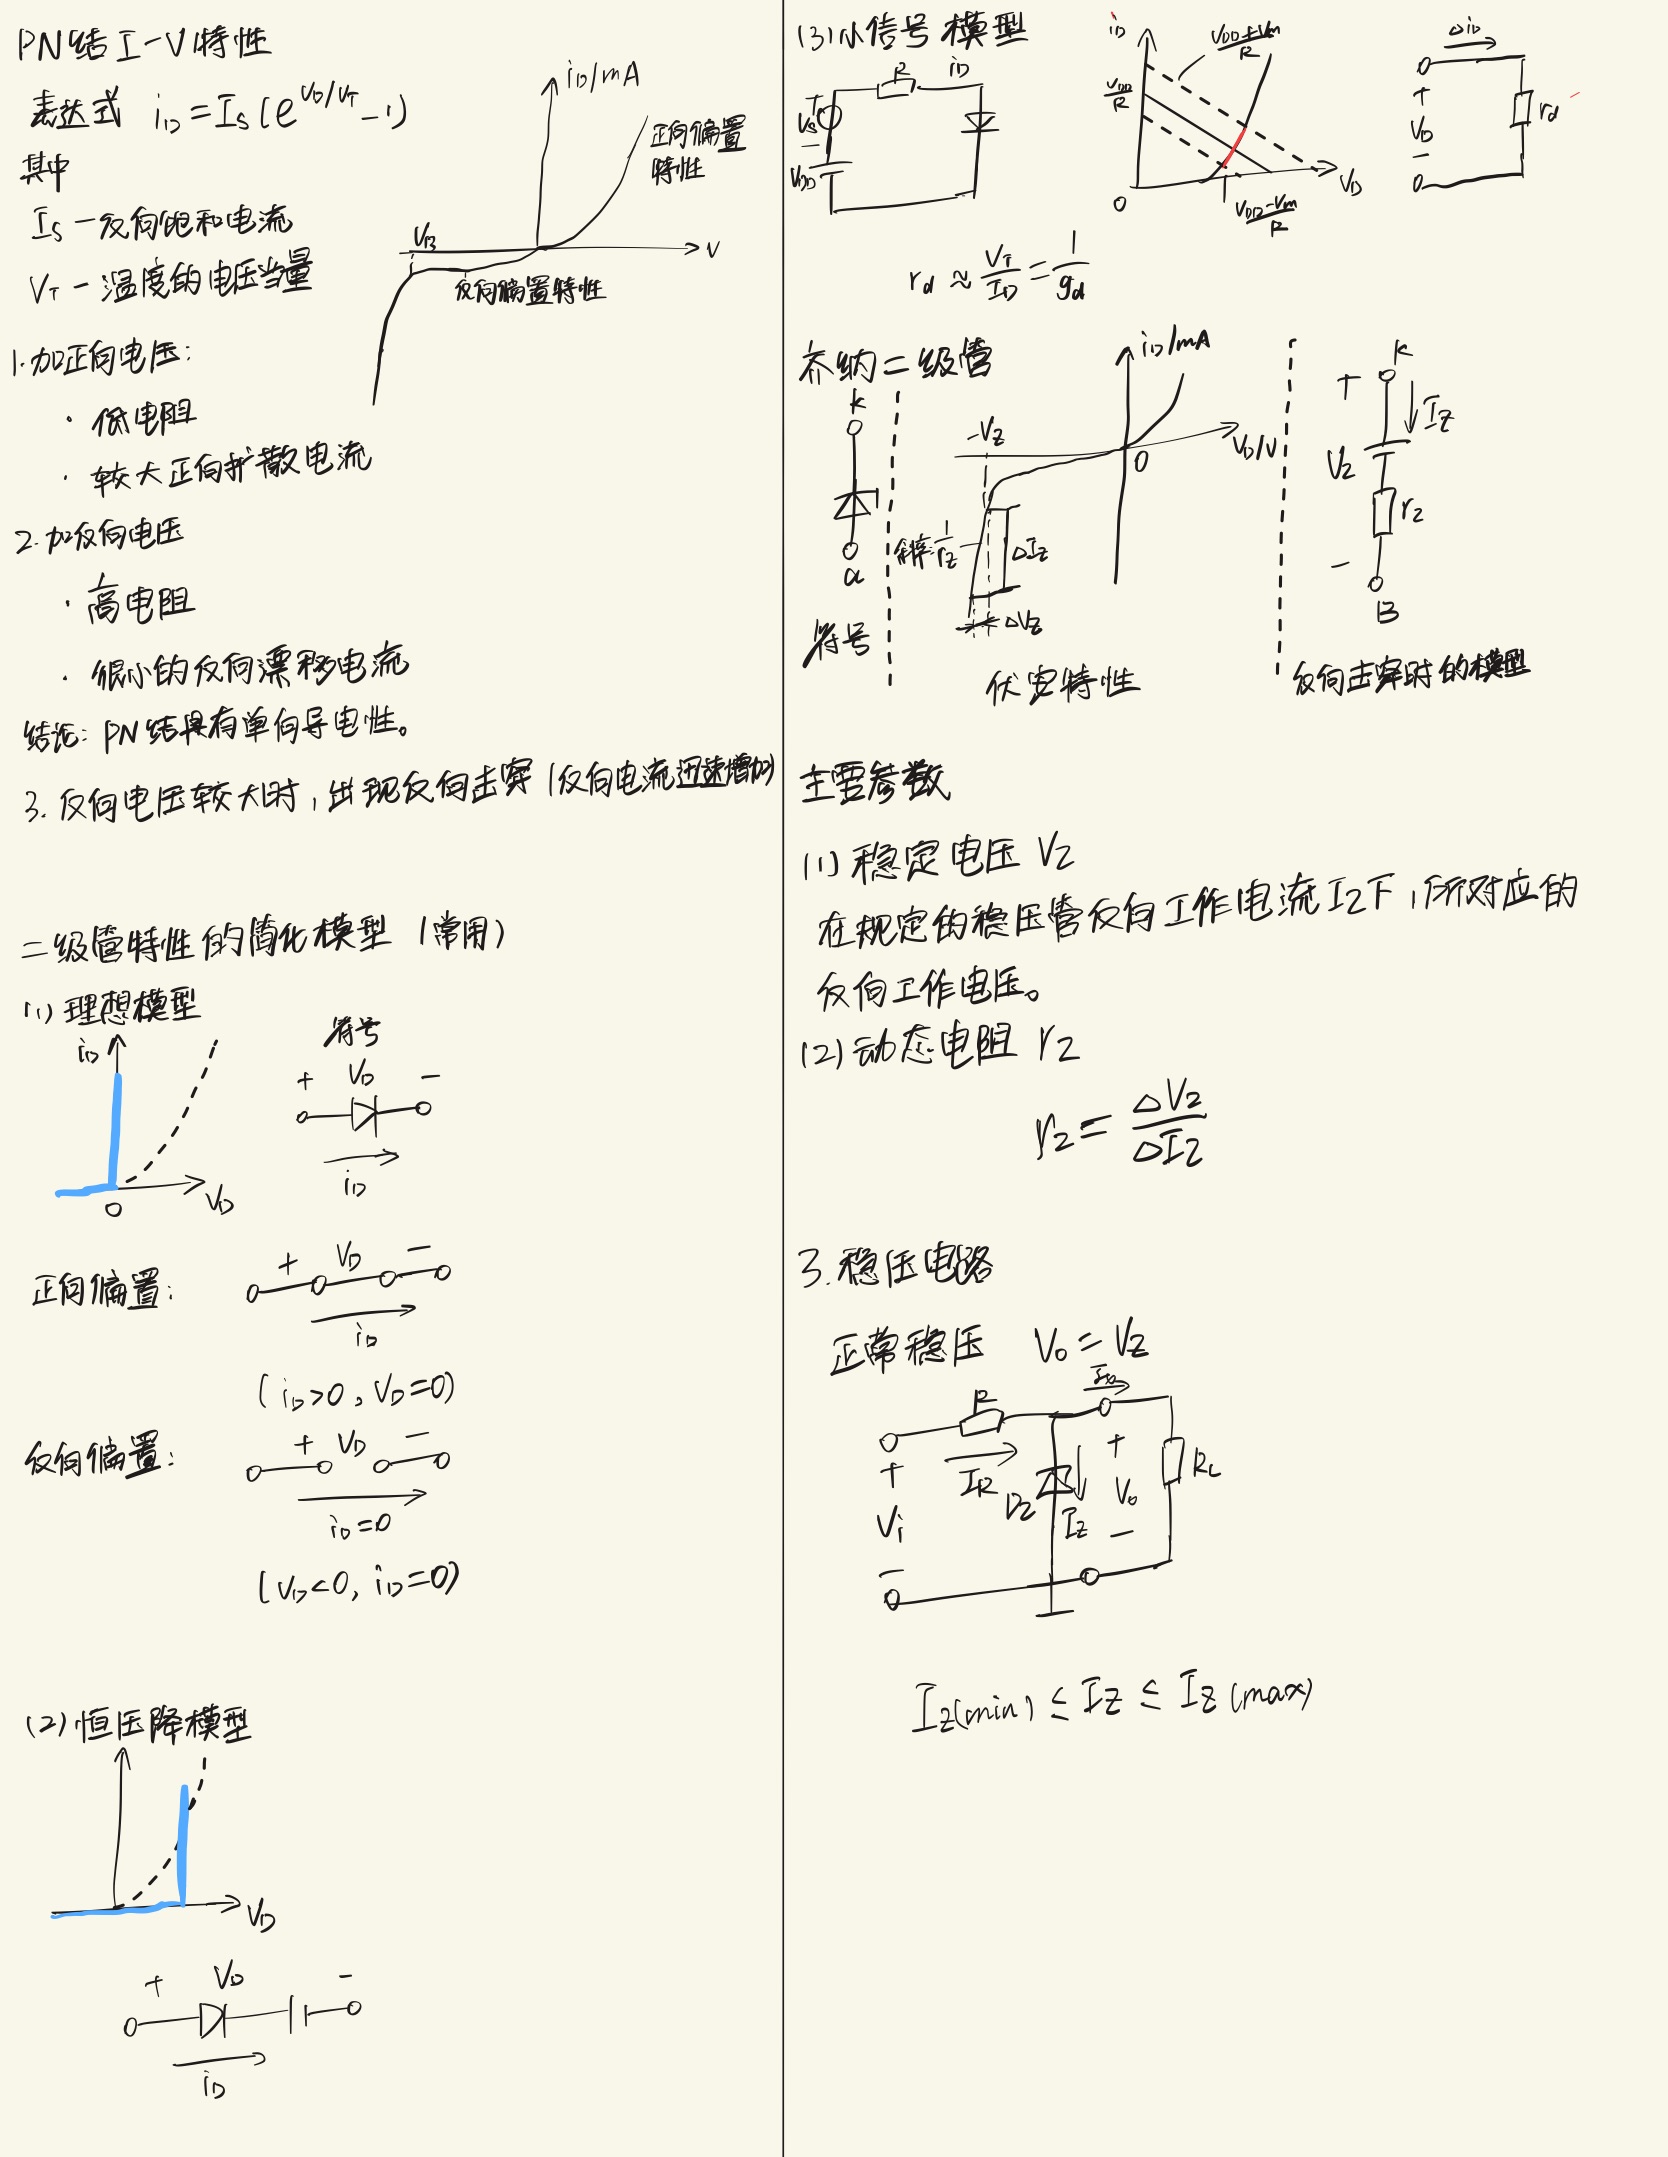 PN结I-V特性
表达式 i_D=I_S(e^{V_D/V_T}-1)
其中
I_S-反向饱和电流
V_T-温度的电压当量
i_D/mA
正向偏置
特性
V_B
V
反向偏置特性
1.加正向电压:
·低电阻
·较大正向扩散电流
2.加反向电压
·高电阻
·很小的反向漂移电流
结论:PN结具有单向导电性。
3.反向电压较大时,出现反向击穿(反向电流迅速增加)
二级管特性的简化模型(常用)
(1)理想模型
i_D
O
V_D
符号
+ V_D -
i_D
正向偏置:
+ V_D -
i_D
(i_D>0,V_D=0)
反向偏置:
+ V_D -
i_D=0
(V_D<0,i_D=0)
(2)恒压降模型
V_D
+ V_D -
i_D
(3)小信号模型
R i_D
+
V_S
-
V_DD
i_D
(V_DD+V_m)/R
V_DD/R
O
V_D
(V_DD-V_m)/R
Δi_D
+
V_D
-
r_d
r_d≈V_T/I_D=1/g_d
齐纳二级管
k
a
符号
i_D/mA
-V_Z
O
V_D/V
斜率1/r_Z
ΔI_Z
ΔV_Z
伏安特性
k
+
I_Z
V_Z
r_Z
-
B
反向击穿时的模型
主要参数
(1)稳定电压 V_Z
在规定的稳压管反向工作电流I_Z下,所对应的
反向工作电压。
(2)动态电阻 r_Z
r_Z=ΔV_Z/ΔI_Z
3.稳压电路
正常稳压 V_o=V_Z
R
I_o
+
V_i
-
I_R
D_Z
I_Z
+
V_o
-
R_L
I_Z(min)≤I_Z≤I_Z(max)